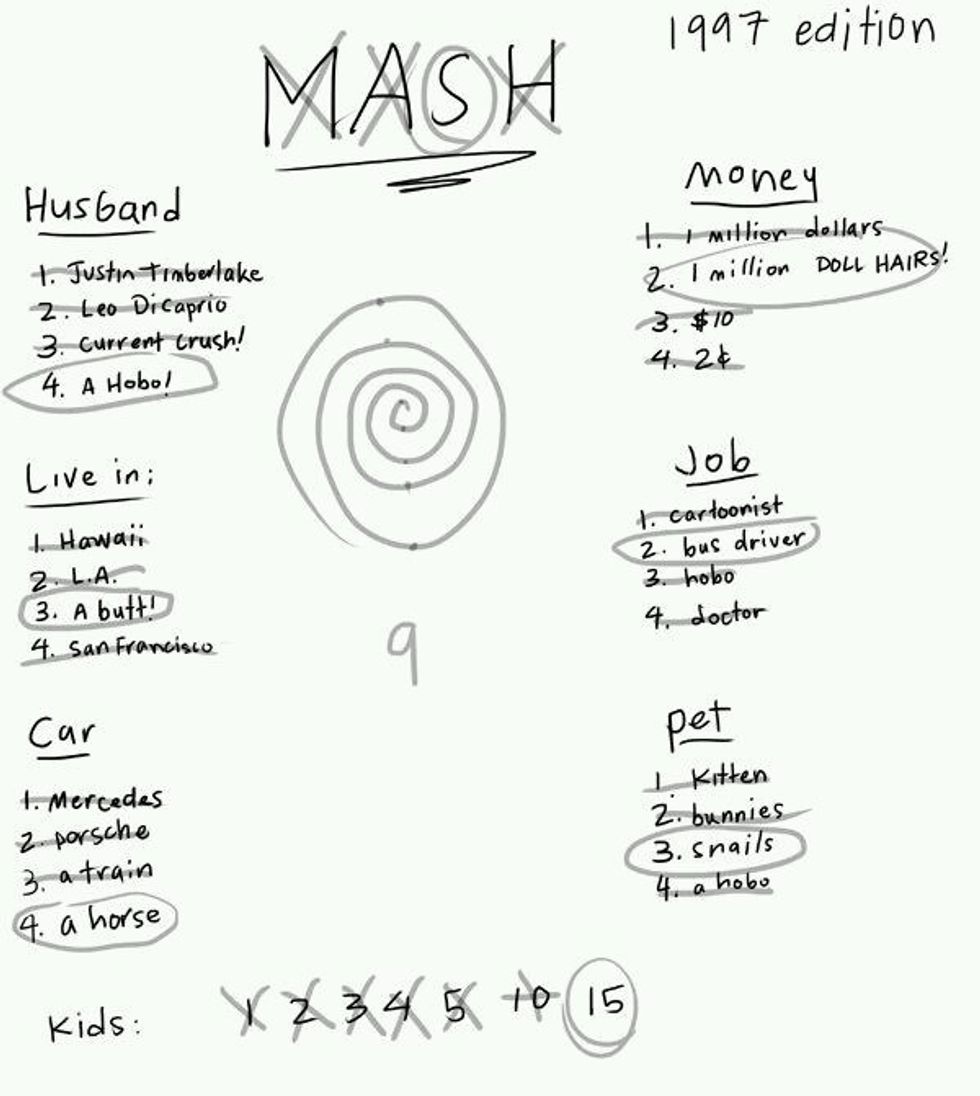 1997 edition
MASH
Husband
1. Justin Timberlake
2. Leo Dicaprio
3. Current crush!
4. A Hobo!
Live in:
1. Hawaii
2. L.A.
3. A butt!
4. San Francisco
Car
1. Mercedes
2. porsche
3. a train
4. a horse
Money
1. 1 million dollars
2. 1 million DOLL HAIRS!
3. $10
4. 2¢
Job
1. cartoonist
2. bus driver
3. hobo
4. doctor
pet
1 Kitten
2. bunnies
3. snails
4. a hobo
9
Kids: 1 2 3 4 5 10 15